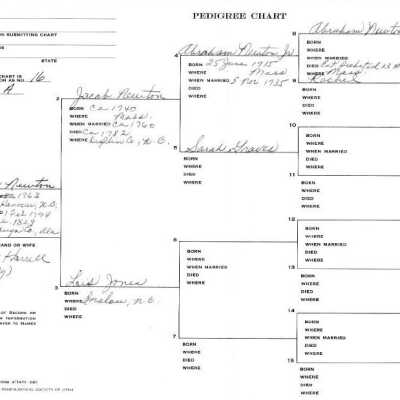 PEDIGREE CHART
N SUBMITTING CHART
STATE
CHART IS
AS NO. 16
A
8 Abraham Newton
BORN
WHERE
WHEN MARRIED
DIED
WHERE
Mass
9 Rachel
BORN
WHERE
DIED
WHERE
4 Abraham Newton Jr.
BORN 25 June 1715
WHERE Mass
WHEN MARRIED 5 Nov 1735
DIED
WHERE
2 Jacob Newton
BORN Ca 1740
WHERE Mass.
WHEN MARRIED Ca 1760
DIED Ca 1782
WHERE Co, N.C.
5 Sarah Graves
BORN
WHERE
DIED
WHERE
10
BORN
WHERE
WHEN MARRIED
DIED
WHERE
11
BORN
WHERE
DIED
WHERE
Newton
1763
N.C.
1794
1823
Co, Ala
AND OR WIFE
Harrell
3 Lois Jones
BORN
WHERE Onslow, N.C.
DIED
WHERE
6
BORN
WHERE
WHEN MARRIED
DIED
WHERE
7
BORN
WHERE
DIED
WHERE
12
BORN
WHERE
WHEN MARRIED
DIED
WHERE
13
BORN
WHERE
DIED
WHERE
14
BORN
WHERE
WHEN MARRIED
DIED
WHERE
15
BORN
WHERE
DIED
WHERE
OF RECORD OR
INFORMATION
REFER TO NAMES
GENEALOGICAL SOCIETY OF UTAH